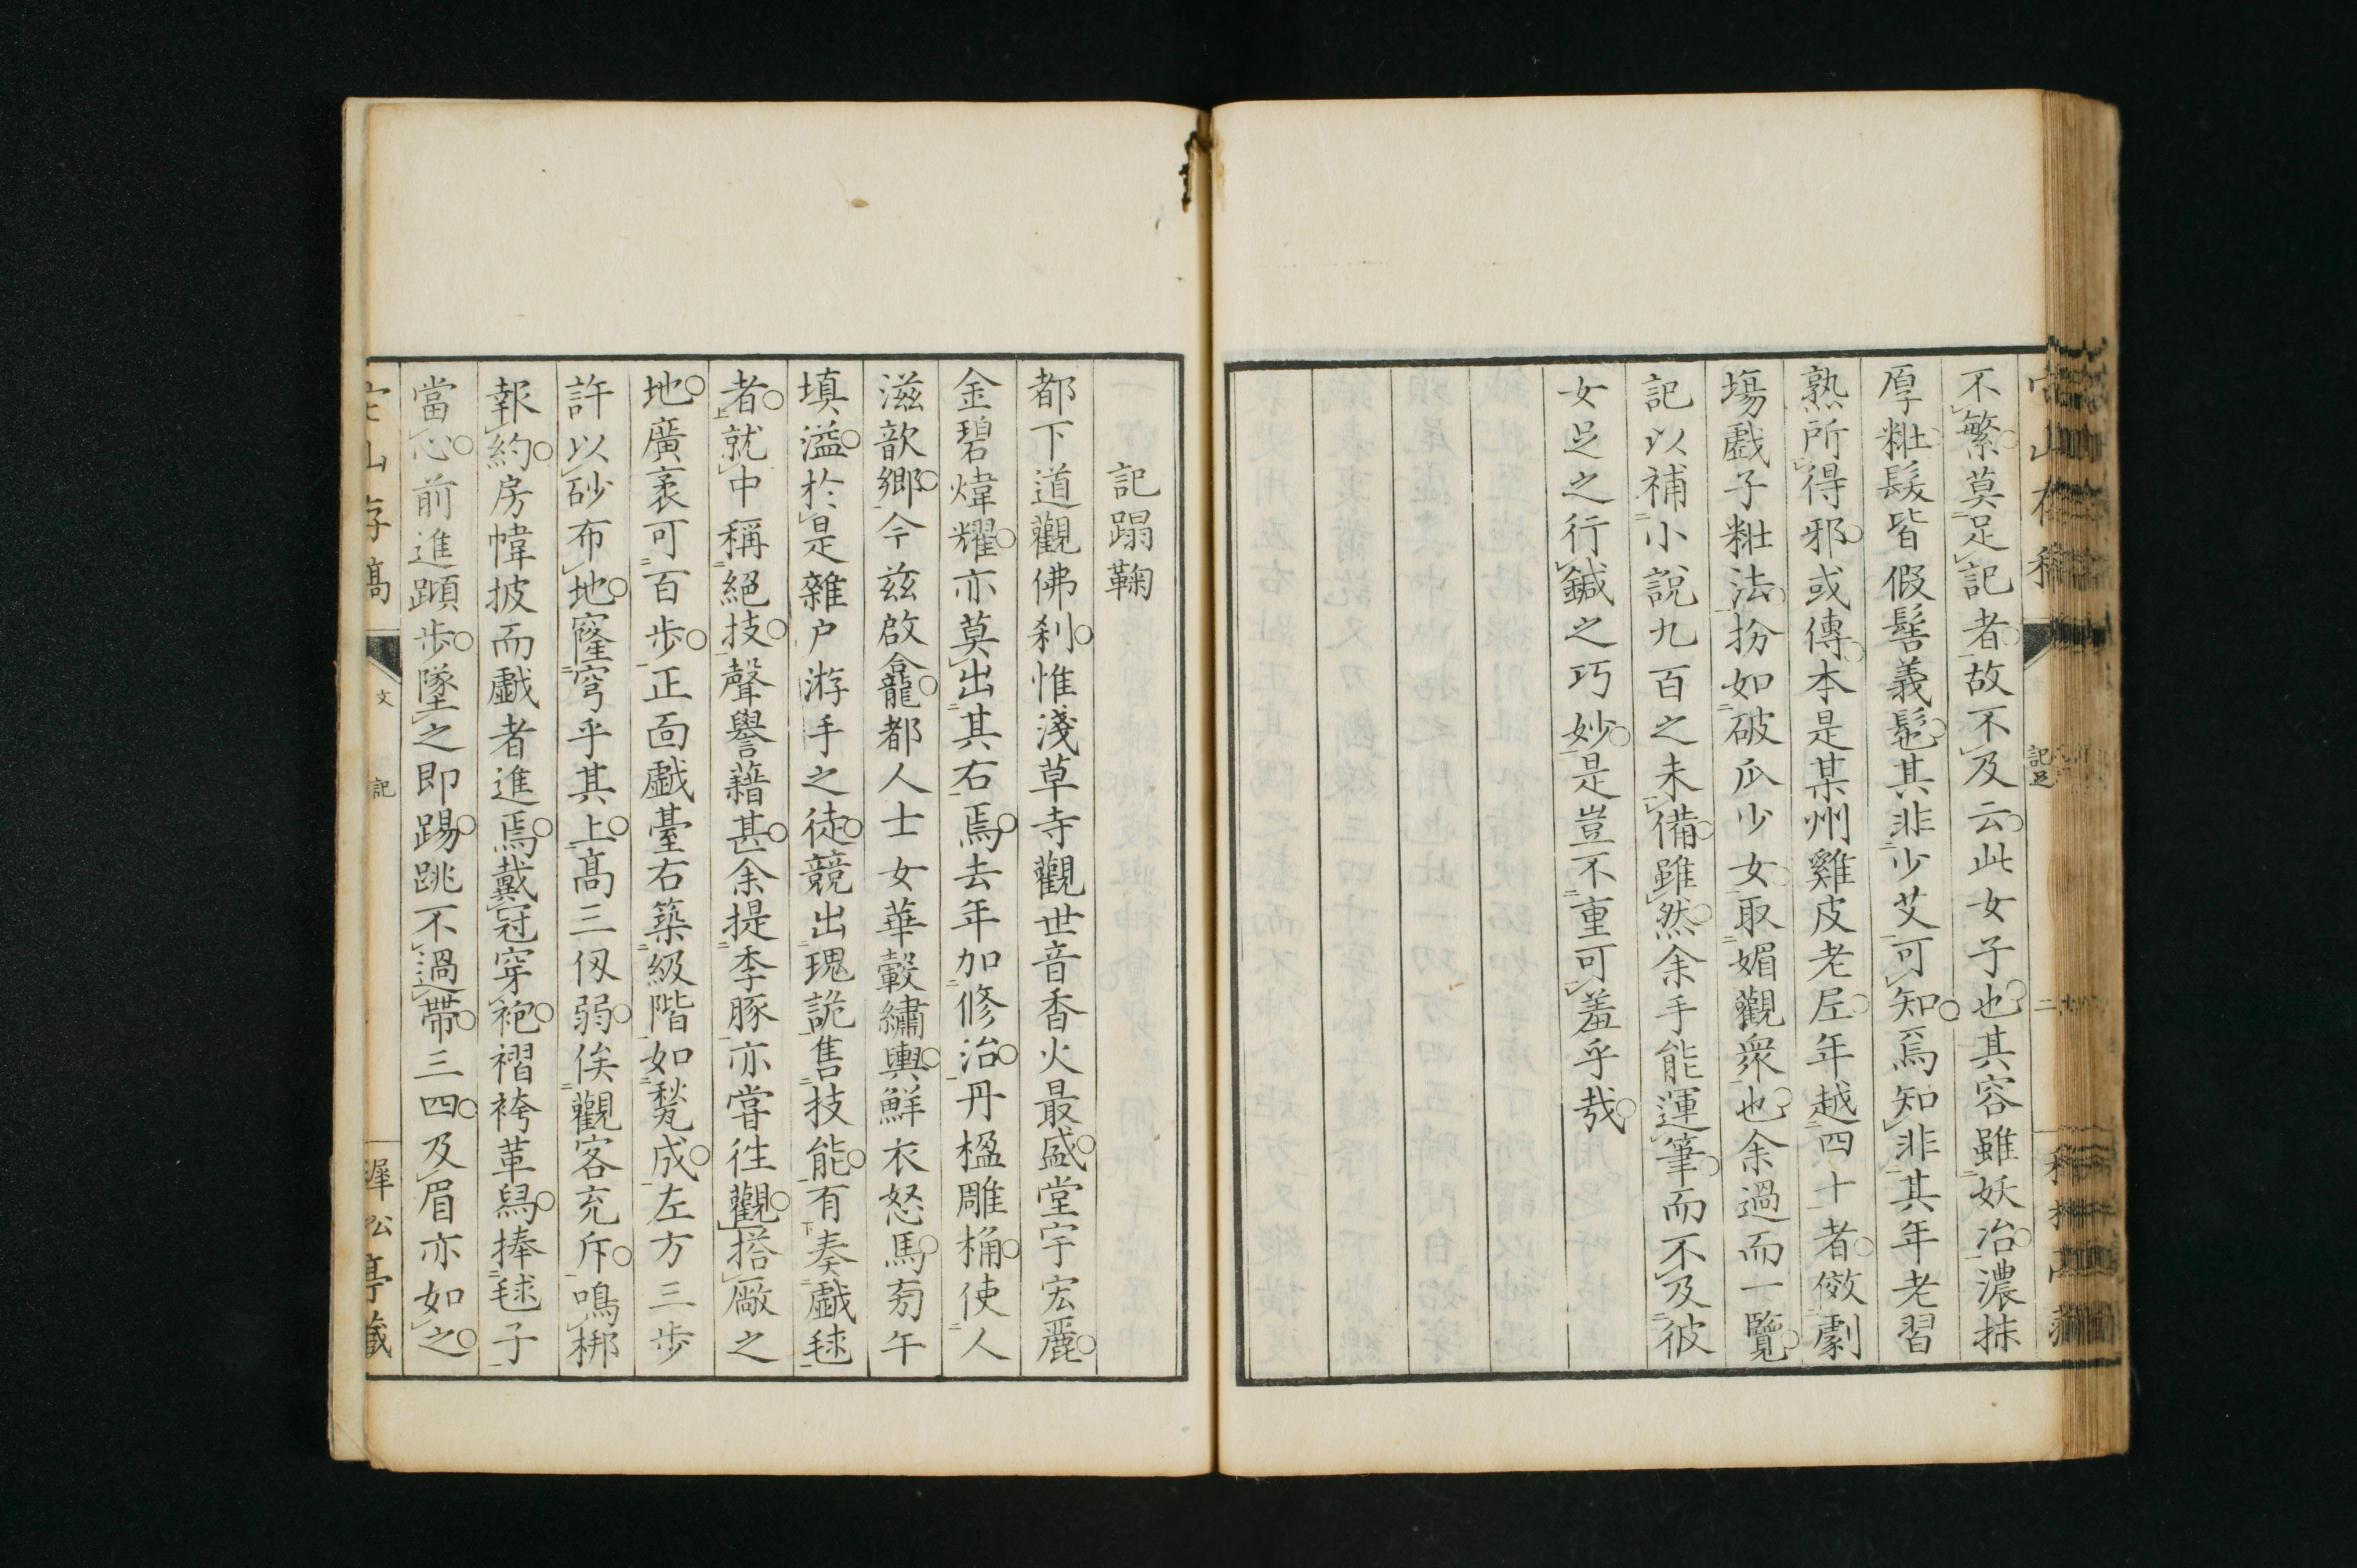 不繁莫足記者故不及云此女子也其容雖妖冶濃抹
厚粧髮皆假髻義髢其非少艾可知焉知非其年老習
熟所得邪或傳本是某州雞皮老㞐年越四十者倣劇
場戲子粧法扮如破瓜少女取媚觀衆也余過而一覽
記以補小說九百之未備雖然余手能運筆而不及彼
女足之行鍼之巧妙是豈不重可羞乎哉
記蹋鞠
都下道觀佛刹惟淺草寺觀世音香火最盛堂宇宏麗
金碧煒耀亦莫出其右焉去年加修治丹楹雕桷使人
滋歆鄉今茲啟龕都人士女華轂繡輿鮮衣怒馬旁午
填溢於是雜戶游手之徒競出瑰詭售技能有奏戲毬
者就中稱絕技聲譽藉甚余提季豚亦嘗往觀搭廠之
地廣袤可百步正面戲臺右築級階如甃成左方三步
許以砂布地窿穹乎其上高三仭弱俟觀客充斥鳴梆
報約房幃披而戲者進焉戴冠穿袍褶袴革舄捧毬子
當心前進蹞步墜之即踢跳不過帶三四及眉亦如之
文
記